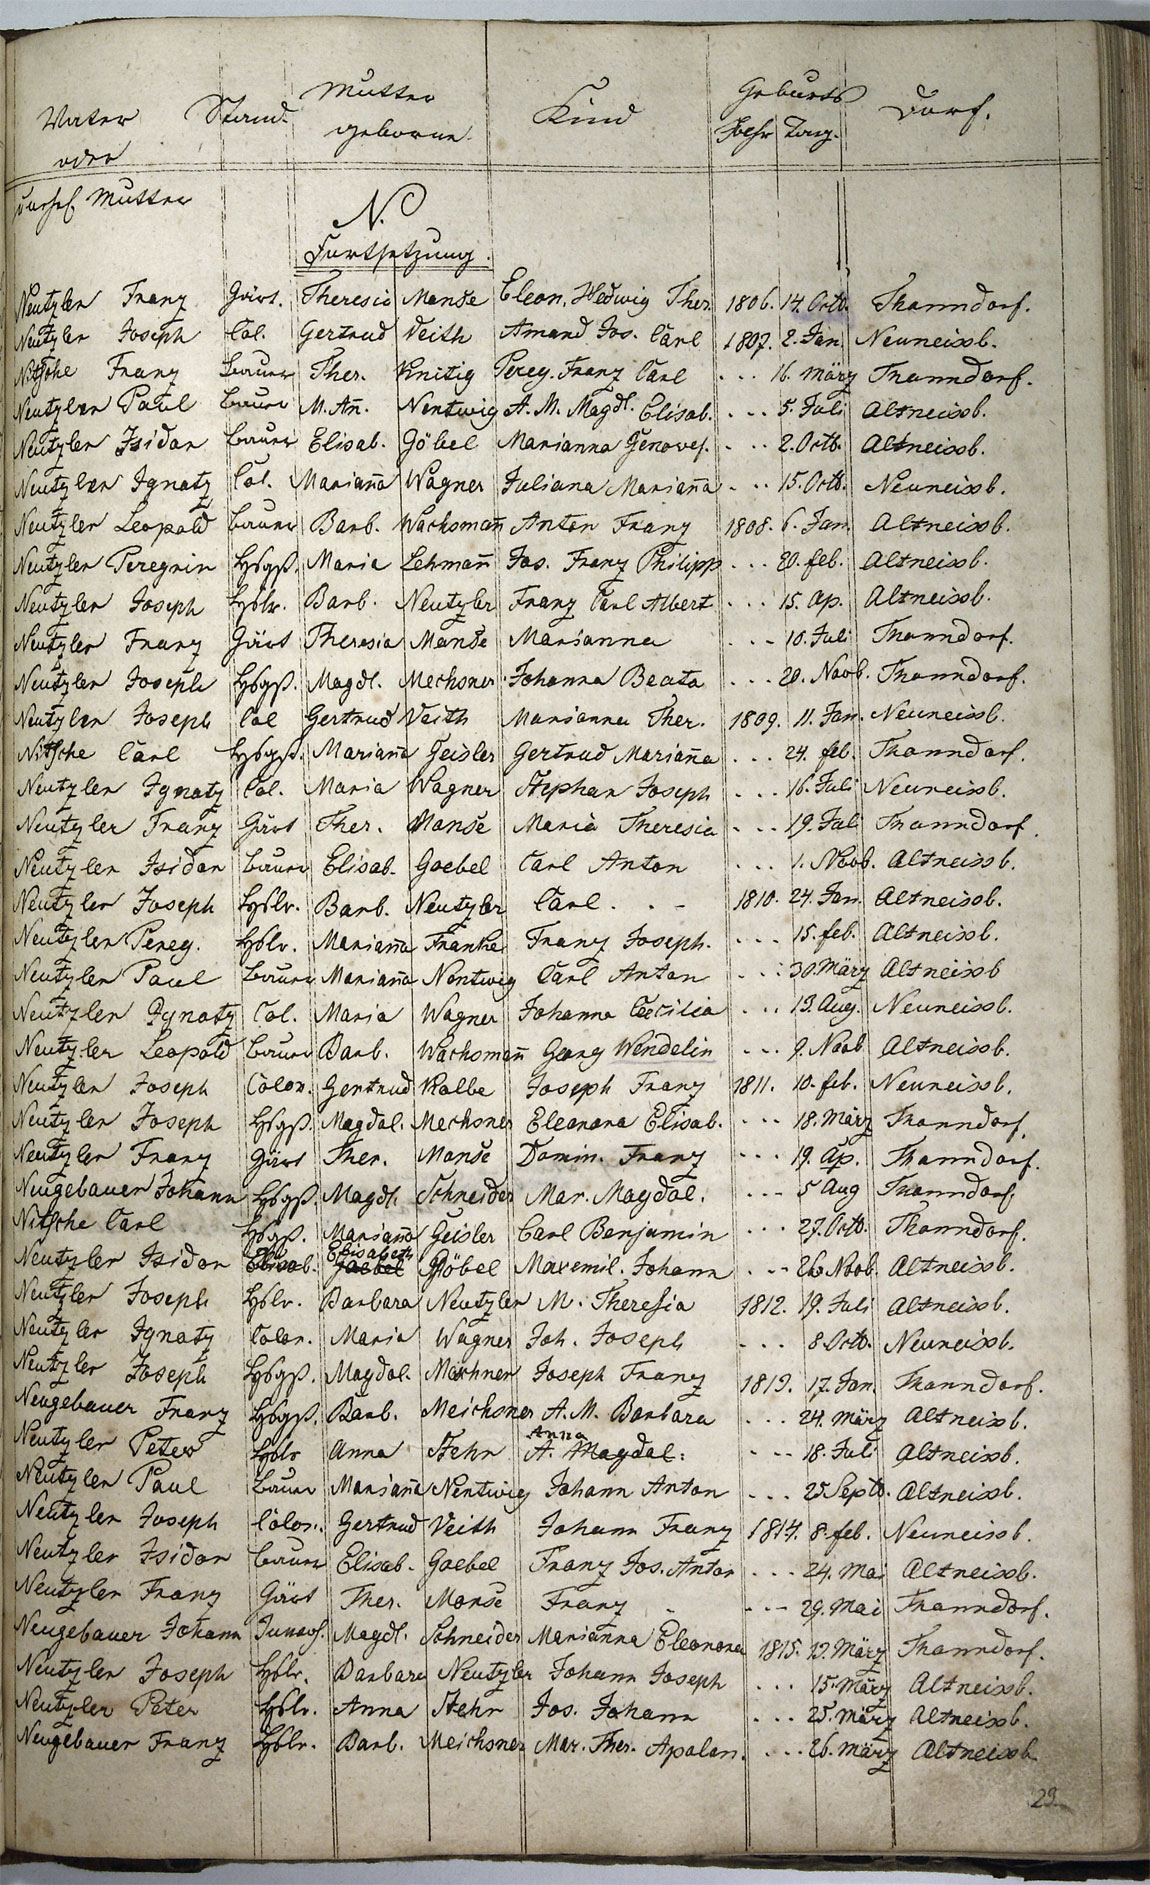 Vater Stand. Mutter Kind Geburts Dorf.
oder geborne. Jahr Tag.
Mutter
N.
Fortsetzung.
Neutzler Franz Gärt. Theresia Monse Eleon. Hedwig Ther. 1806. 14. Octb. Thanndorf.
Neutzler Joseph Col. Gertrud Veith Amand Jos. Carl 1807. 2. Jan. Neuneissb.
Nitsche Franz Bauer Ther. Knitig Pereg. Franz Carl ... 16. März Thanndorf.
Neutzler Paul Bauer M. An̄. Nentwig A. M. Magdl. Elisab. ... 5. Juli Altneissb.
Neutzler Isidor Bauer Elisab. Göbel Marianna Genovef. ... 2. Octb. Altneissb.
Neutzler Ignatz Col. Marian̄a Wagner Juliana Marian̄a ... 15. Octb. Neuneissb.
Neutzler Leopold Bauer Barb. Wachsman̄ Anton Franz 1808. 6. Jan. Altneissb.
Neutzler Peregrin Hsgß. Maria Lehman̄ Jos. Franz Philipp ... 20. feb. Altneissb.
Neutzler Joseph Hslr. Barb. Neutzler Franz Carl Albert ... 15. Ap. Altneissb.
Neutzler Franz Gärt Theresia Monse Marianna .. 10. Juli Thanndorf.
Neutzler Joseph Hsgß. Magdl. Mechsner Johanna Beata ... 20. Novb. Thanndorf.
Neutzler Joseph Col Gertrud Veith Marianna Ther. 1809. 11. Jan. Neuneissb.
Nitsche Carl Hsgß. Marian̄a Geisler Gertrud Marian̄a ... 24. feb. Thanndorf.
Neutzler Ignatz Col. Maria Wagner Stephan Joseph ... 16. Juli Neuneissb.
Neutzler Franz Gärt Ther. Monse Maria Theresia ... 19. Juli Thanndorf.
Neutzler Isidor Bauer Elisab. Goebel Carl Anton ... 1. Novb. Altneissb.
Neutzler Joseph Hslr. Barb. Neutzler Carl . . - 1810. 24. Jan. Altneissb.
Neutzler Pereg. Hslr. Marian̄a Franke Franz Joseph. ... 15. feb. Altneissb.
Neutzler Paul Bauer Marian̄a Nentwig Carl Anton ... 30. März Altneissb
Neutzler Ignatz Col. Maria Wagner Johanna Caecilia ... 13. Aug. Neuneissb.
Neutzler Leopold Bauer Barb. Wachsman̄ Georg Wendelin ... 9. Novb Altneissb.
Neutzler Joseph Colon. Gertrud Kalbe Joseph Franz 1811. 10. feb. Neuneissb.
Neutzler Joseph Hsgß. Magdal. Mechsner Eleonora Elisab. ... 18. März Thanndorf.
Neutzler Franz Gärt Ther. Monse Domin. Franz ... 19. Ap. Thanndorf.
Neugebauer Johann Hsgß. Magdl. Schneider Mar. Magdal. ... 5 Aug Thanndorf.
Nitsche Carl Hsgß. Marian̄a Geisler Carl Benjamin ... 27. Octb. Thanndorf.
Neutzler Isidor Elisab. Elisabeth Goebel Göbel Maximil. Johann ... 26 Novb. Altneissb.
Neutzler Joseph Hslr. Barbara Neutzler M. Theresia 1812. 19. Juli Altneissb.
Neutzler Ignatz Colon. Maria Wagner Joh. Joseph ... 8 Octb. Neuneissb.
Neutzler Joseph Hsgß. Magdal. Mechner Joseph Franz 1813. 17. Jan. Thanndorf.
Neugebauer Franz Hsgß. Barb. Meichsner A. M. Barbara ... 24. März Altneissb.
Anna
Neutzler Peter Hslr Anna Stehr A. Magdal: ... 18. Juli Altneissb.
Neutzler Paul Bauer Marian̄a Nentwig Johann Anton ... 25 Septb. Altneissb.
Neutzler Joseph Colon. Gertrud Veith Johann Franz 1814. 8. feb. Neuneissb.
Neutzler Isidor Bauer Elisab. Goebel Franz Jos. Anton ... 24. Mai Altneissb.
Neutzler Franz Gärt Ther. Monse Franz - ... 29. Mai Thanndorf.
Neugebauer Johann Magdl. Schneider Marianna Eleonora 1815. 13. März Thanndorf.
Neutzler Joseph Hslr. Barbara Neutzler Johann Joseph ... 15. März Altneissb.
Neutzler Peter Hslr. Anna Stehr Jos. Johann ... 25. März Altneissb.
Neugebauer Franz Hslr. Barb. Meichsner Mar. Ther. Apolon. ... 26. März Altneissb.
29